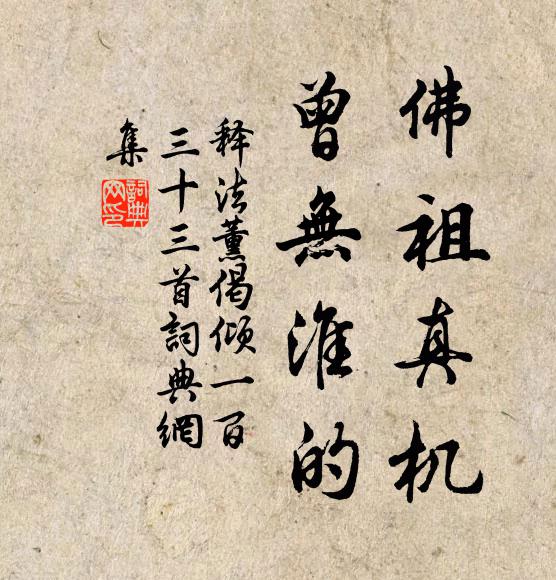 佛祖真机
曾無淮的
释法薰偈倾一百
三十三首詞典網
集
詞典网印